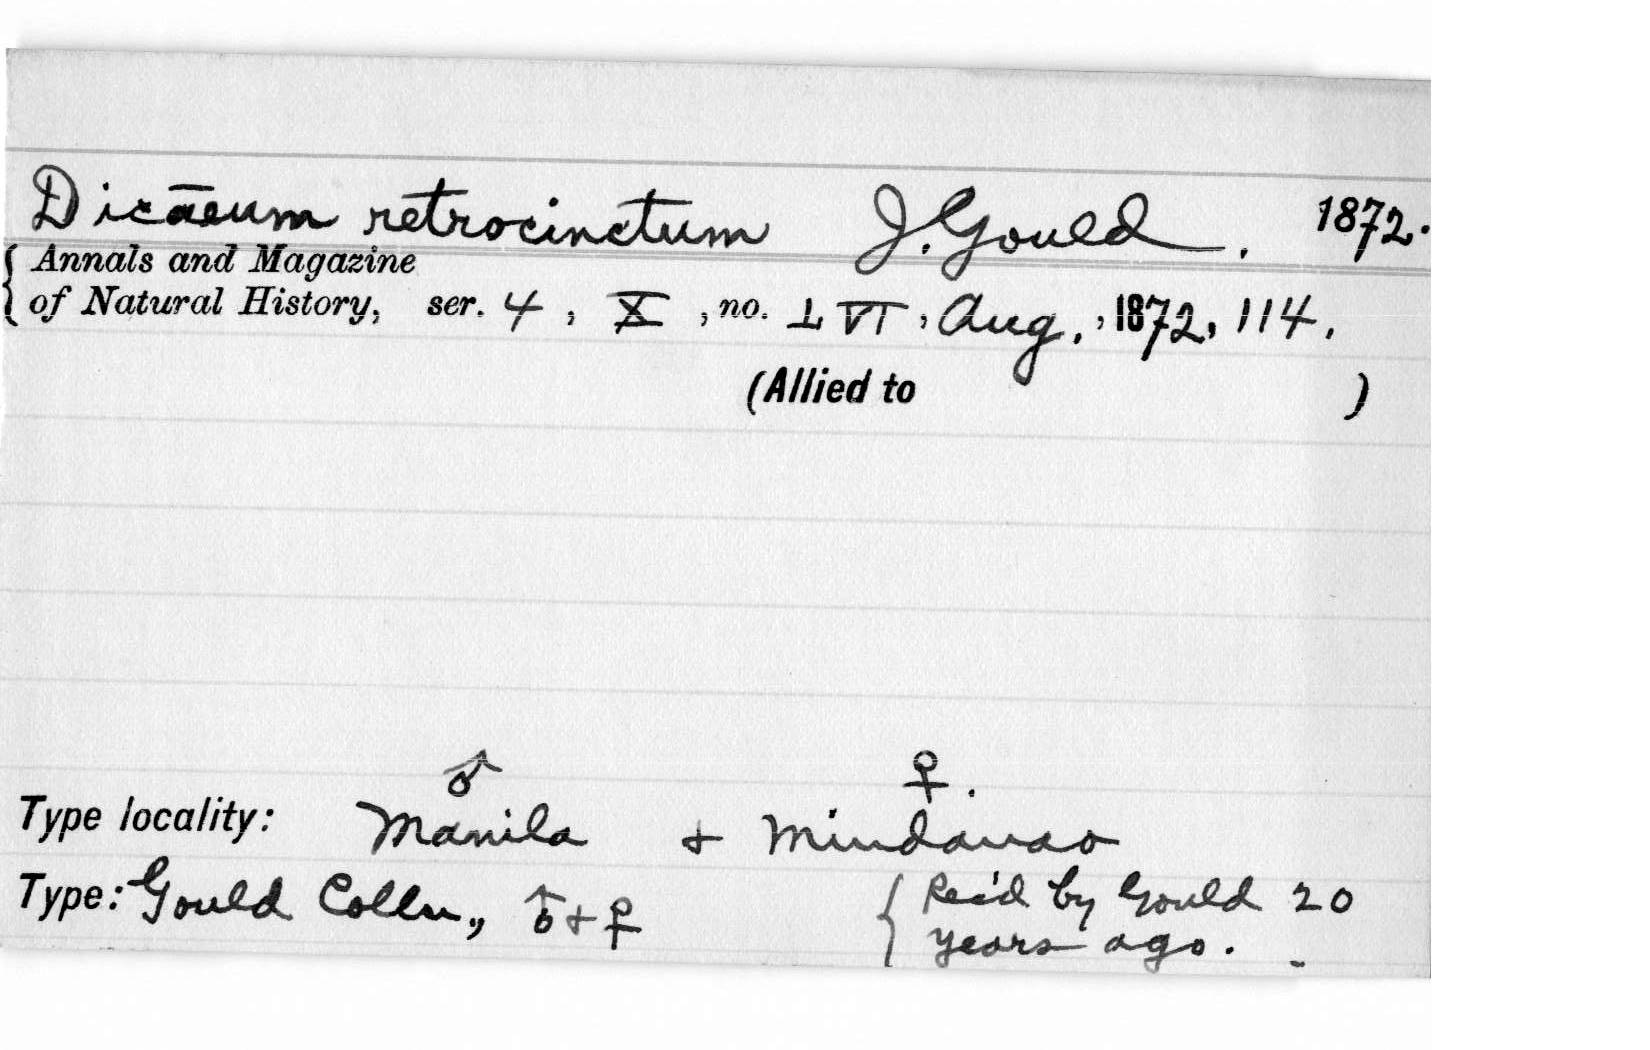 Dicāeum retrocinctum J. Gould. 1872.
{ Annals and Magazine
of Natural History, ser. 4, X, no. LVI, Aug., 1872, 114.
(Allied to )
♂ ♀.
Type locality: Manila + Mindanao
Type: Gould Colln., ♂ + ♀ { Rec'd by Gould 20
years ago.